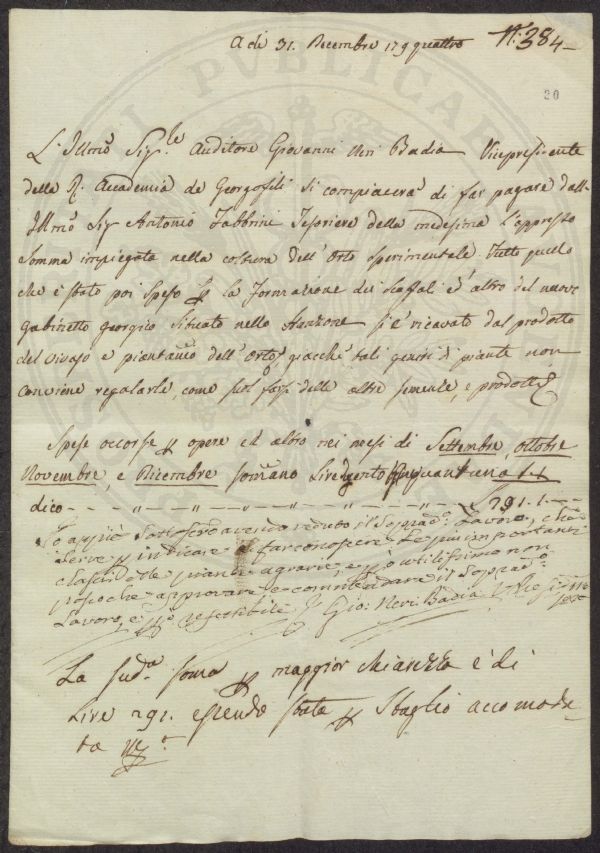 A dì 31. Decembre 179 quattro N.° 384
20
L'Illmo Sig.re Auditore Giovanni Neri Badia Vicepresidente
della R. Accademia de Georgofili si compiacerà di far pagare dall
Illmo Sig Antonio Fabbrini Tesoriere della medesima l'appresso
Somma impiegata nella coltura dell'Orto Sperimentale. Tutto quello
che è stato poi speso p la formazione dei Scaffali ed altro del nuovo
gabinetto georgico situato nello Stanzone si è ricavato dal prodotto
del vivajo e piantume dell'Orto, giacchè tali generi di piante non
conviene regalarle, come suol farsi delle altre semente, e prodotti
Spese occorse p opere ed altro nei mesi di Settembre, ottobre
Novembre, e Dicembre sommano Lire
dico - - - „ - - „ - - „ - - „ - - „ - - L 291. 1. -
Io appiè Sottoscro avendo veduto il Soprad.o Lavoro, che
serve p indicare e far conoscere le più importanti
classi delle piante agrarie, e p ciò utilissimo non
posso che approvare, e commendare il Soprad.o
Lavoro, e Gio: Neri Badia V. Presid.te
La sud.a soma p maggior chiarezza è di
Lire 291. essendo stata p sbaglio accomoda-
ta
PUBLICA